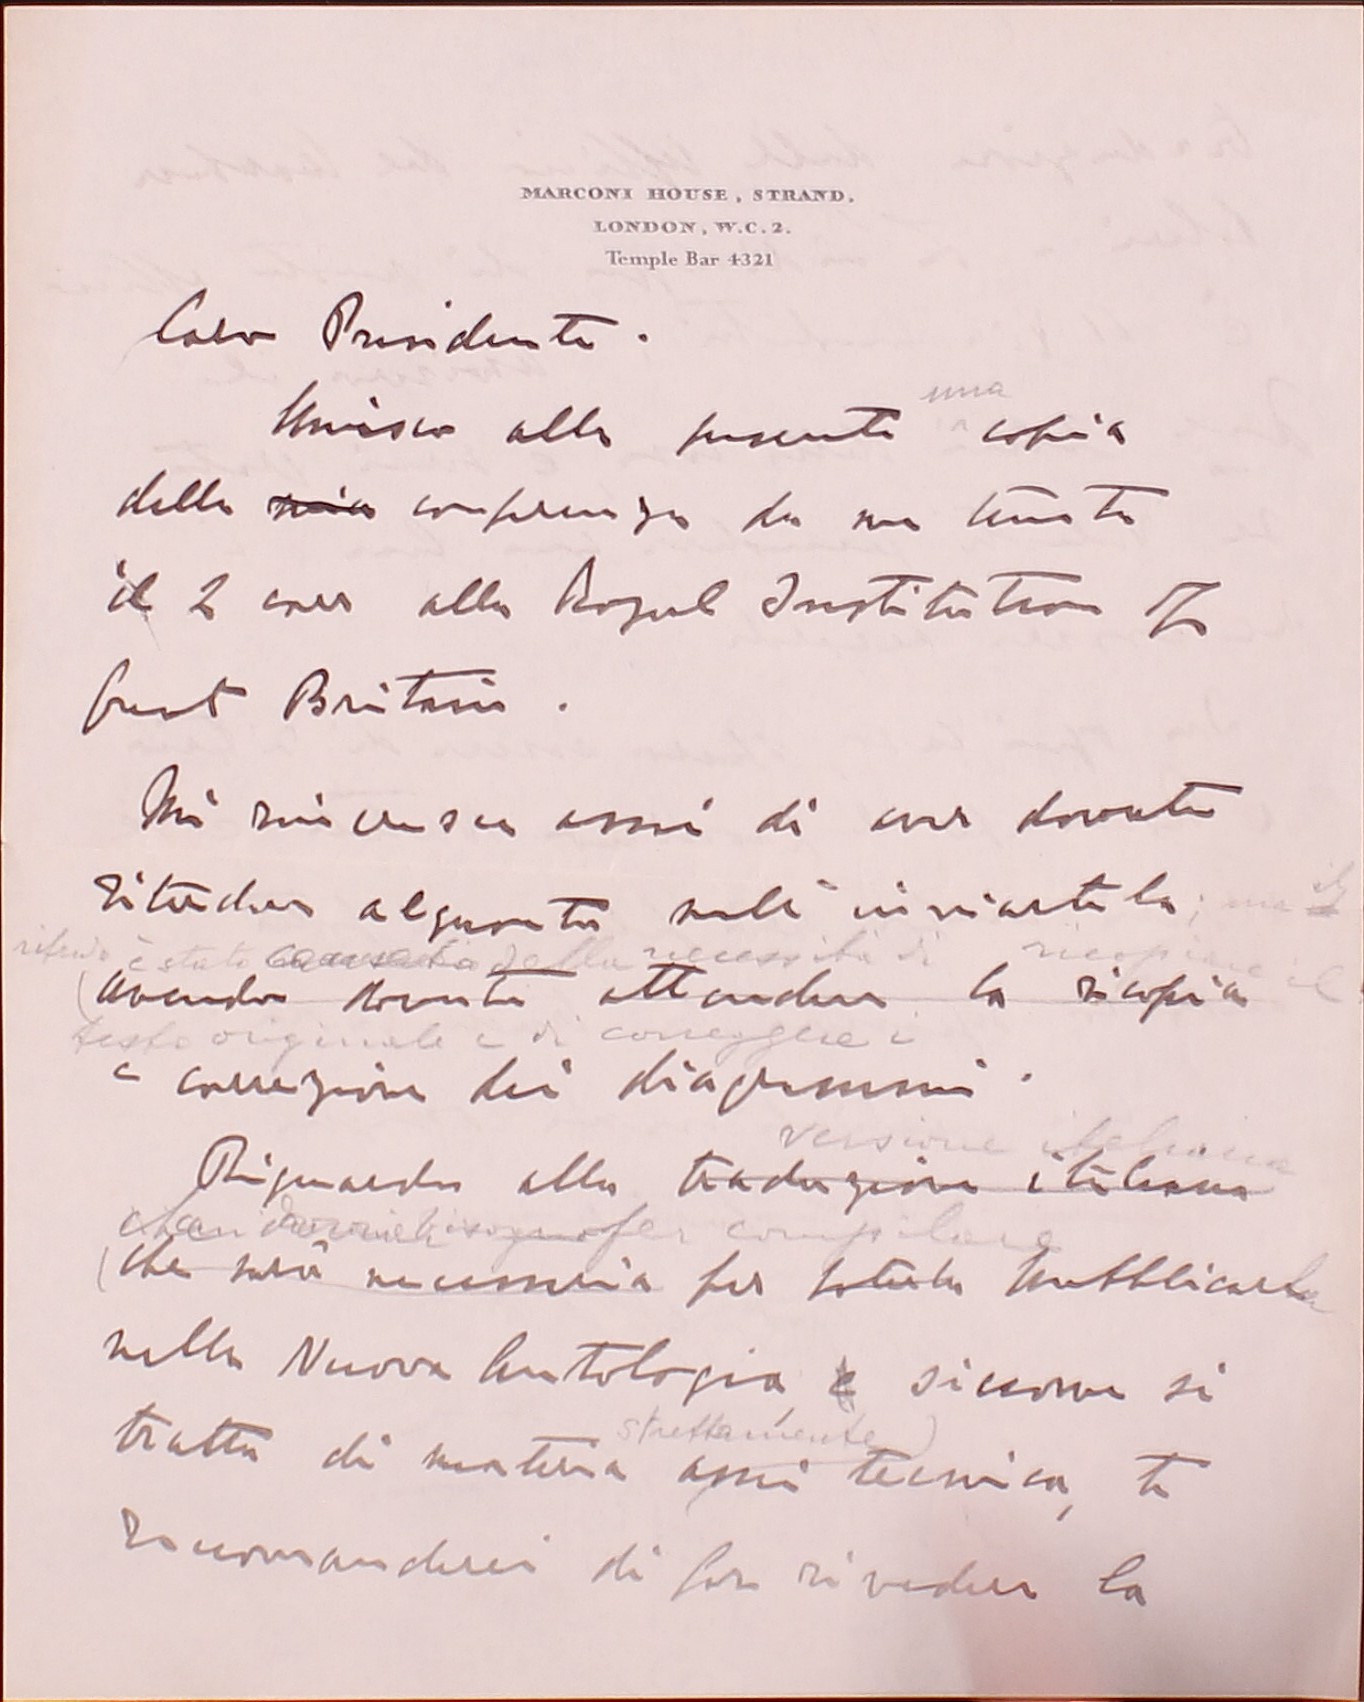 MARCONI HOUSE, STRAND.
LONDON, W.C.2.
Temple Bar 4321
Caro Presidente.
una
Unisco alla presente copia
della mia conferenza da me tenuta
il 2 corr alla Royal Institution of
Great Britain.
Mi rincresce assai di aver dovuto
ritardare alquanto nell'inviartela; ma il
ritardo è stato causato dalla necessità di ricopiare il
(avendo dovuto attendere la ricopia
testo originale e di correggere i
e correzione dei diagrammi.
versione italiana
Riguardo alla traduzione italiana
bisogno per compilare
(che sarà necessaria per poterla pubblicarla
nella Nuova Antologia, e siccome si
strettamente)
tratta di materia assai tecnica, ti
raccomanderei di far rivedere la